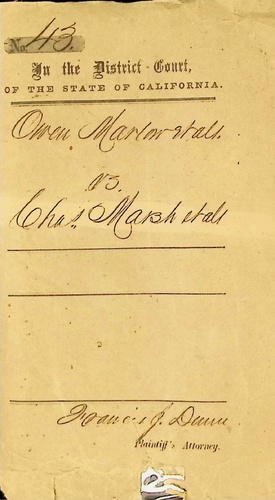 No. 43.
In the District Court,
OF THE STATE OF CALIFORNIA.
Owen Marlow et als.
vs.
Chas. Marsh et als
Francis J. Dunn
Plaintiff's Attorney.